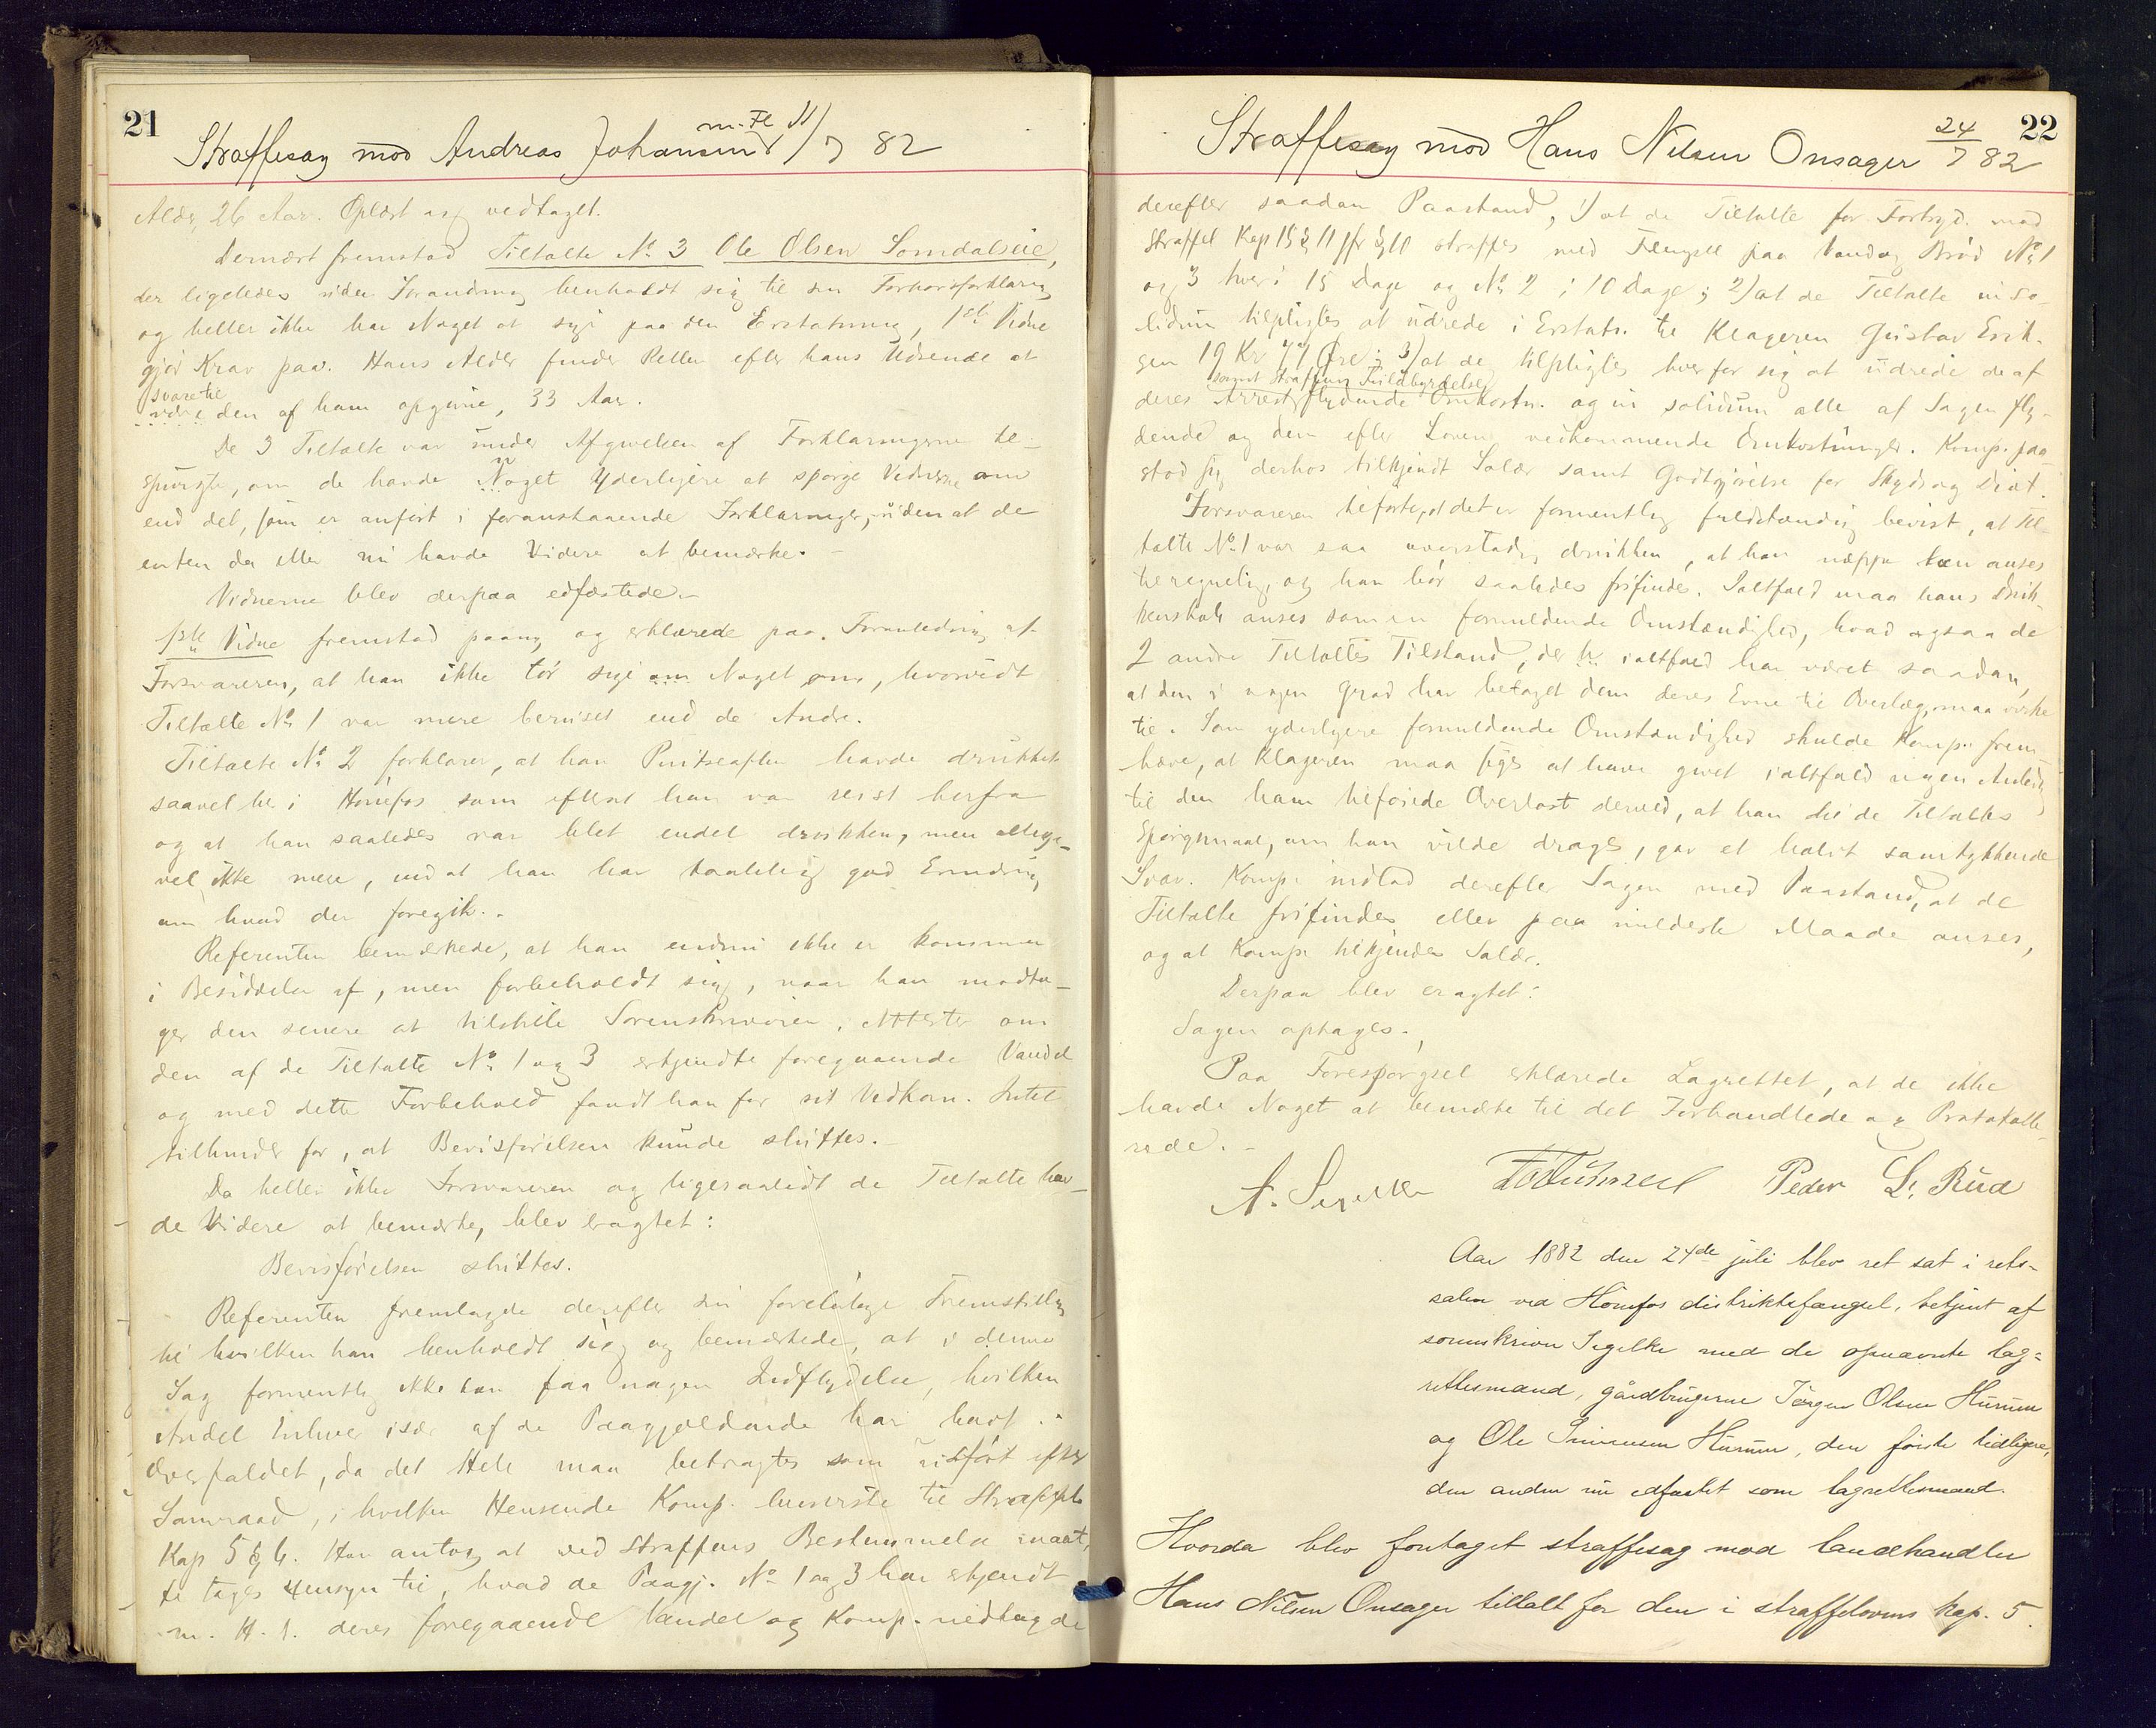 21
Straffesag mod Andreas Johansen m. Fl 11/7 82
Alder, 26 Aar. Oplæst og vedtaget.
Dernæst fremstod Tiltalte No. 3 Ole Olsen Somdalseie,
der ligeledes uden Forandring henholdt sig til sin Forhørsforklaring
og heller ikke har Noget at sige paa den Erstatning, 1ste Vidne
gjør Krav paa. Hans Alder finder Retten efter hans Udseende at
svare til
den af ham opgivne, 33 Aar.
De 3 Tiltalte var under Afgivelsen af Forklaringerne til-
spurgte, om de havde Noget Yderligere at spørge Vidnerne om
end det, som er anført i foranstaaende Forklaringer, uden at de
enten da eller nu havde Videre at bemærke. -
Vidnerne blev derpaa edfæstede. -
1ste Vidne fremstod paany og erklærede paa Foranledning af
Forsvareren, at han ikke tør sige om Noget om, hvorvidt
Tiltalte No. 1 var mere beruset end de Andre.
Tiltalte No. 2 forklarer, at han Pintseaften havde drukket
saavel her i Hønefos som efterat han var reist herfra
og at han saaledes var blet endel drukken, men allige-
vel ikke mere, end at han har taalelig god Erindring
om hvad der foregik. -
Referenten bemærkede, at han endnu ikke er kommen
i Besiddelse af, men forbeholdt sig, naar han modta-
ger den senere at tilstille Sorenskriveren, Attester om
den af de Tiltalte No. 1 og 3 erkjendte foregaaende Vandel
og med dette Forbehold fandt han for sit Vedkom. Intet
tilhinder for, at Bevisførelsen kunde sluttes. -
Da heller ikke Forsvareren og ligesaalidt de Tiltalte hav-
de Videre at bemærke, blev eragtet:
Bevisførelsen sluttes.
Referenten fremlagde derefter sin foreløbige Fremstilling
til hvilken han henholdt sig og bemærkede, at i denne
Sag formentlig ikke kan faa nogen Indflydelse, hvilken
Andel Enhver især af de Paagjældende har havt i
Overfaldet, da det Hele maa betragtes som udført efter
Samraad, i hvilken Henseende Komp. henviste til Straffel.
Kap 5 § 4. Han antog at ved Straffens Bestemmelse maat-
te tages Hensyn til, hvad de Paagj. No. 1 og 3 har erkjendt
m. H. t. deres foregaaende Vandel og Komp. nedlagde
22
Straffesag mod Hans Nilsen Onsager 24/7 82
derefter saadan Paastand, 1) at de Tiltalte for Forbryd. mod
Straffel Kap 15 § 11 jfr § 10 straffes med Fængsel paa Vand og Brød No. 1
og 3 hver i 15 Dage og No. 2 i 10 Dage; 2) at de Tiltalte in so-
lidum tilpligtes at udrede i Erstatn. til Klageren Gustav Erik-
sen 19 Kr 77 Øre; 3) at de tilpligtes hver for sig at udrede de af
samt Straffens Fuldbyrdelse
deres Arrest flydende Omkostn. og in solidum alle af Sagen fly-
dende og dem efter Loven vedkommende Omkostninger. Komp. paa-
stod sig derhos tilkjendt Salær samt Godtgjørelse for Skyds og Diæt.
Forsvareren tilførte, at det er formentlig fuldstændig bevist, at Til-
talte No. 1 var saa overstadig drukken, at han neppe kan anses
tilregnelig, og han bør saaledes frifindes. Ialtfald maa hans Druk-
kenskab anses som en formildende Omstændighed, hvad ogsaa de
2 andre Tiltaltes Tilstand, der ialtfald har været saadan,
at den i nogen Grad har betaget dem deres Evne til Overlæg, maa virke
til. Som yderligere formildende Omstændighed skulde Komp. frem-
hæve, at Klageren maa siges at have givet ialtfald nogen Anledng
til den ham tilføiede Overlast derved, at han til de Tiltaltes
Spørgsmaal, om han vilde drages, gav et halvt samtykkende
Svar. Komp. indlod derefter Sagen med Paastand, at de
Tiltalte frifindes eller paa mildeste Maade anses,
og at Komp. tilkjendes Salær.
Derpaa blev eragtet:
Sagen optages.
Paa Forespørgsel erklærede Lagrettet, at de ikke
havde Noget at bemærke til det Forhandlede og Protokolle-
rede. -
A. Segelcke Peder L. Rud
Aar 1882 den 24de juli blev ret sat i rets-
salen ved Hønefos distriktsfængsel, betjent af
sorenskriver Segelke med de opnævnte lag-
rettesmænd, gårdbrugerne Jørgen Olsen Hurum
og Ole Hurum, den første tidligere,
den anden nu edfæstet som lagrettesmand.
Hvorda blev foretaget straffesag mod landhandler
Hans Nilsen Onsager tiltalt for den i straffelovens kap. 5.